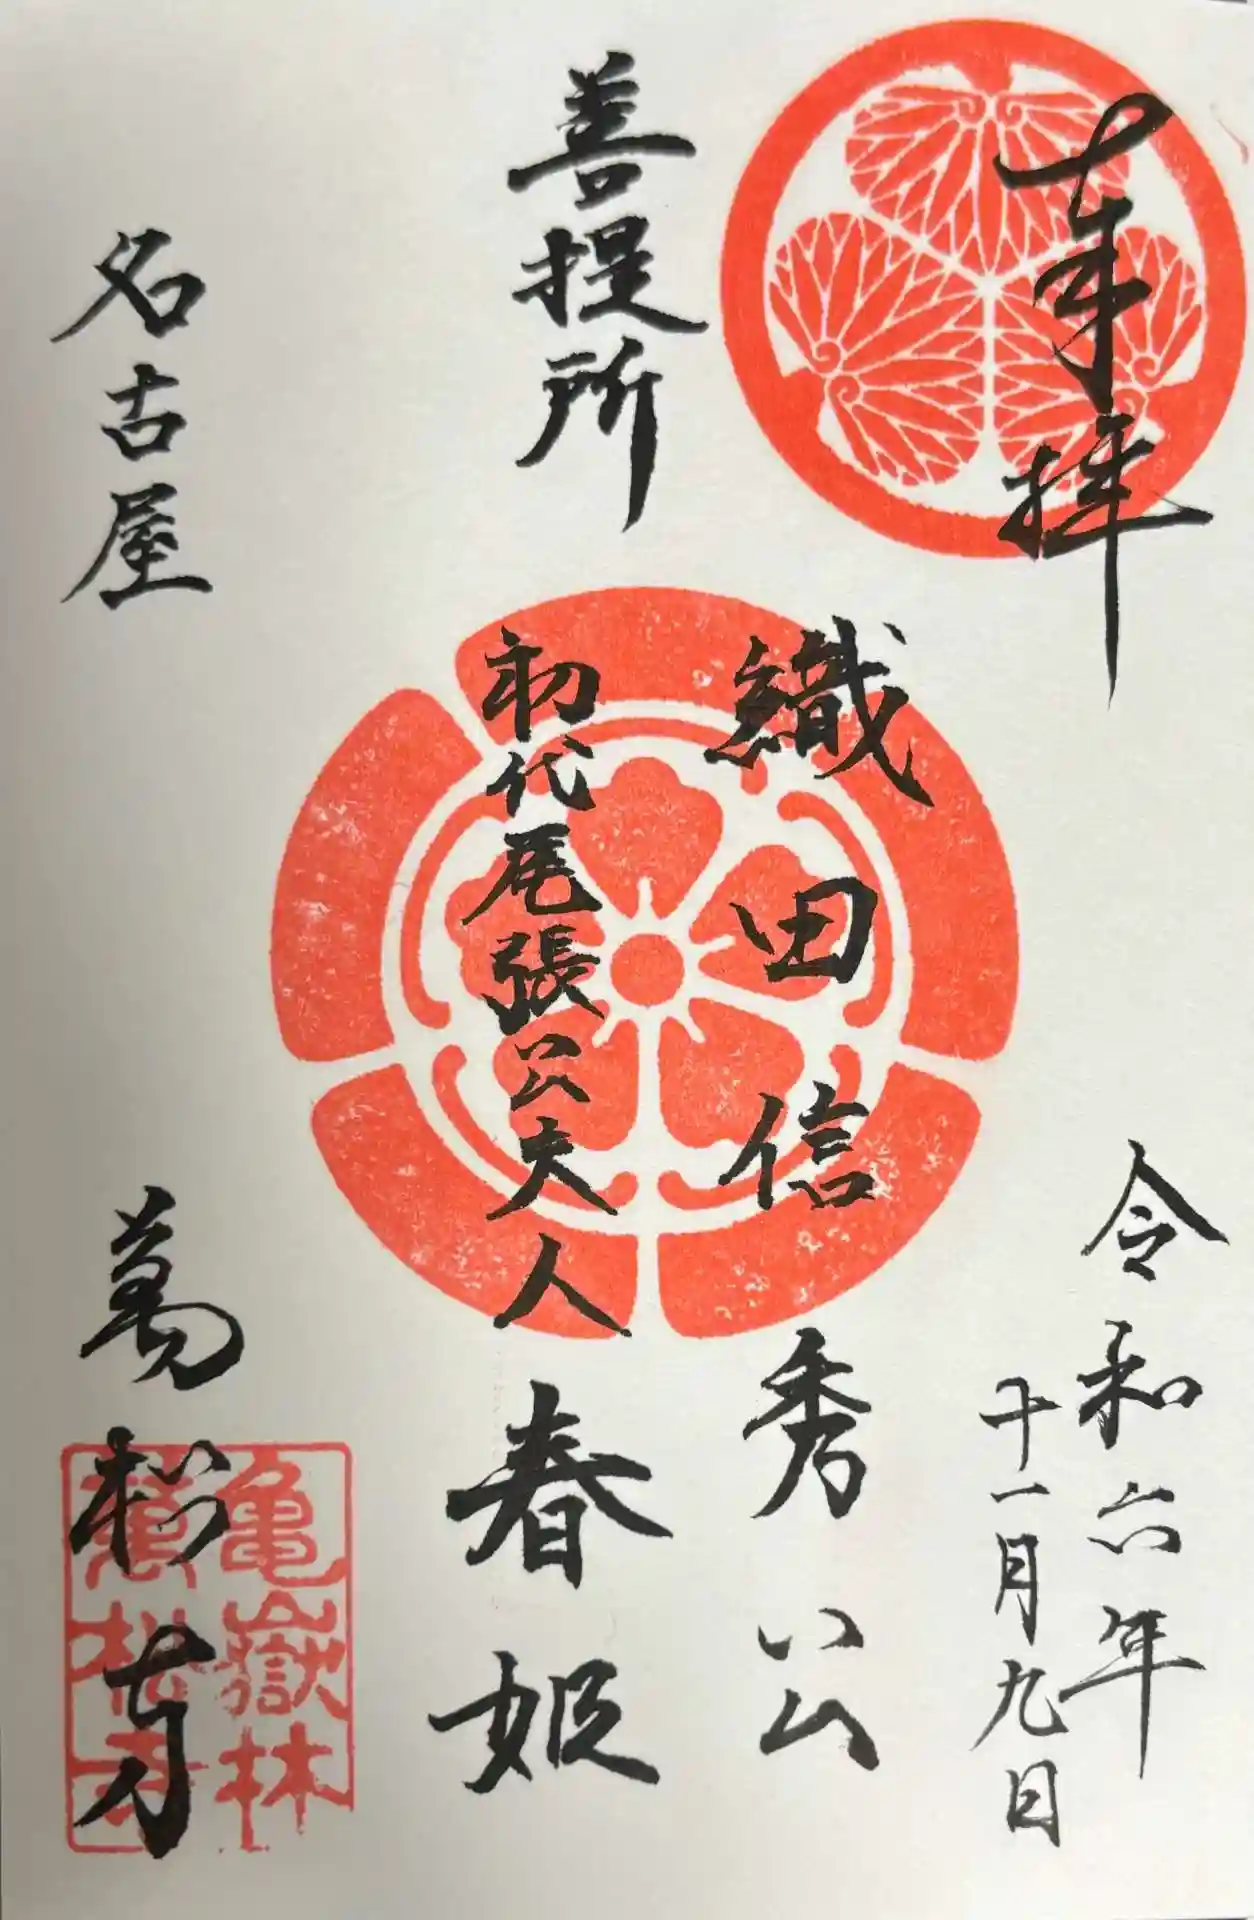 奉拝
令和六年
十一月九日
織田信秀公
初代尾張公夫人春姫
菩提所
名古屋
萬松寺
亀嶽林
萬松寺